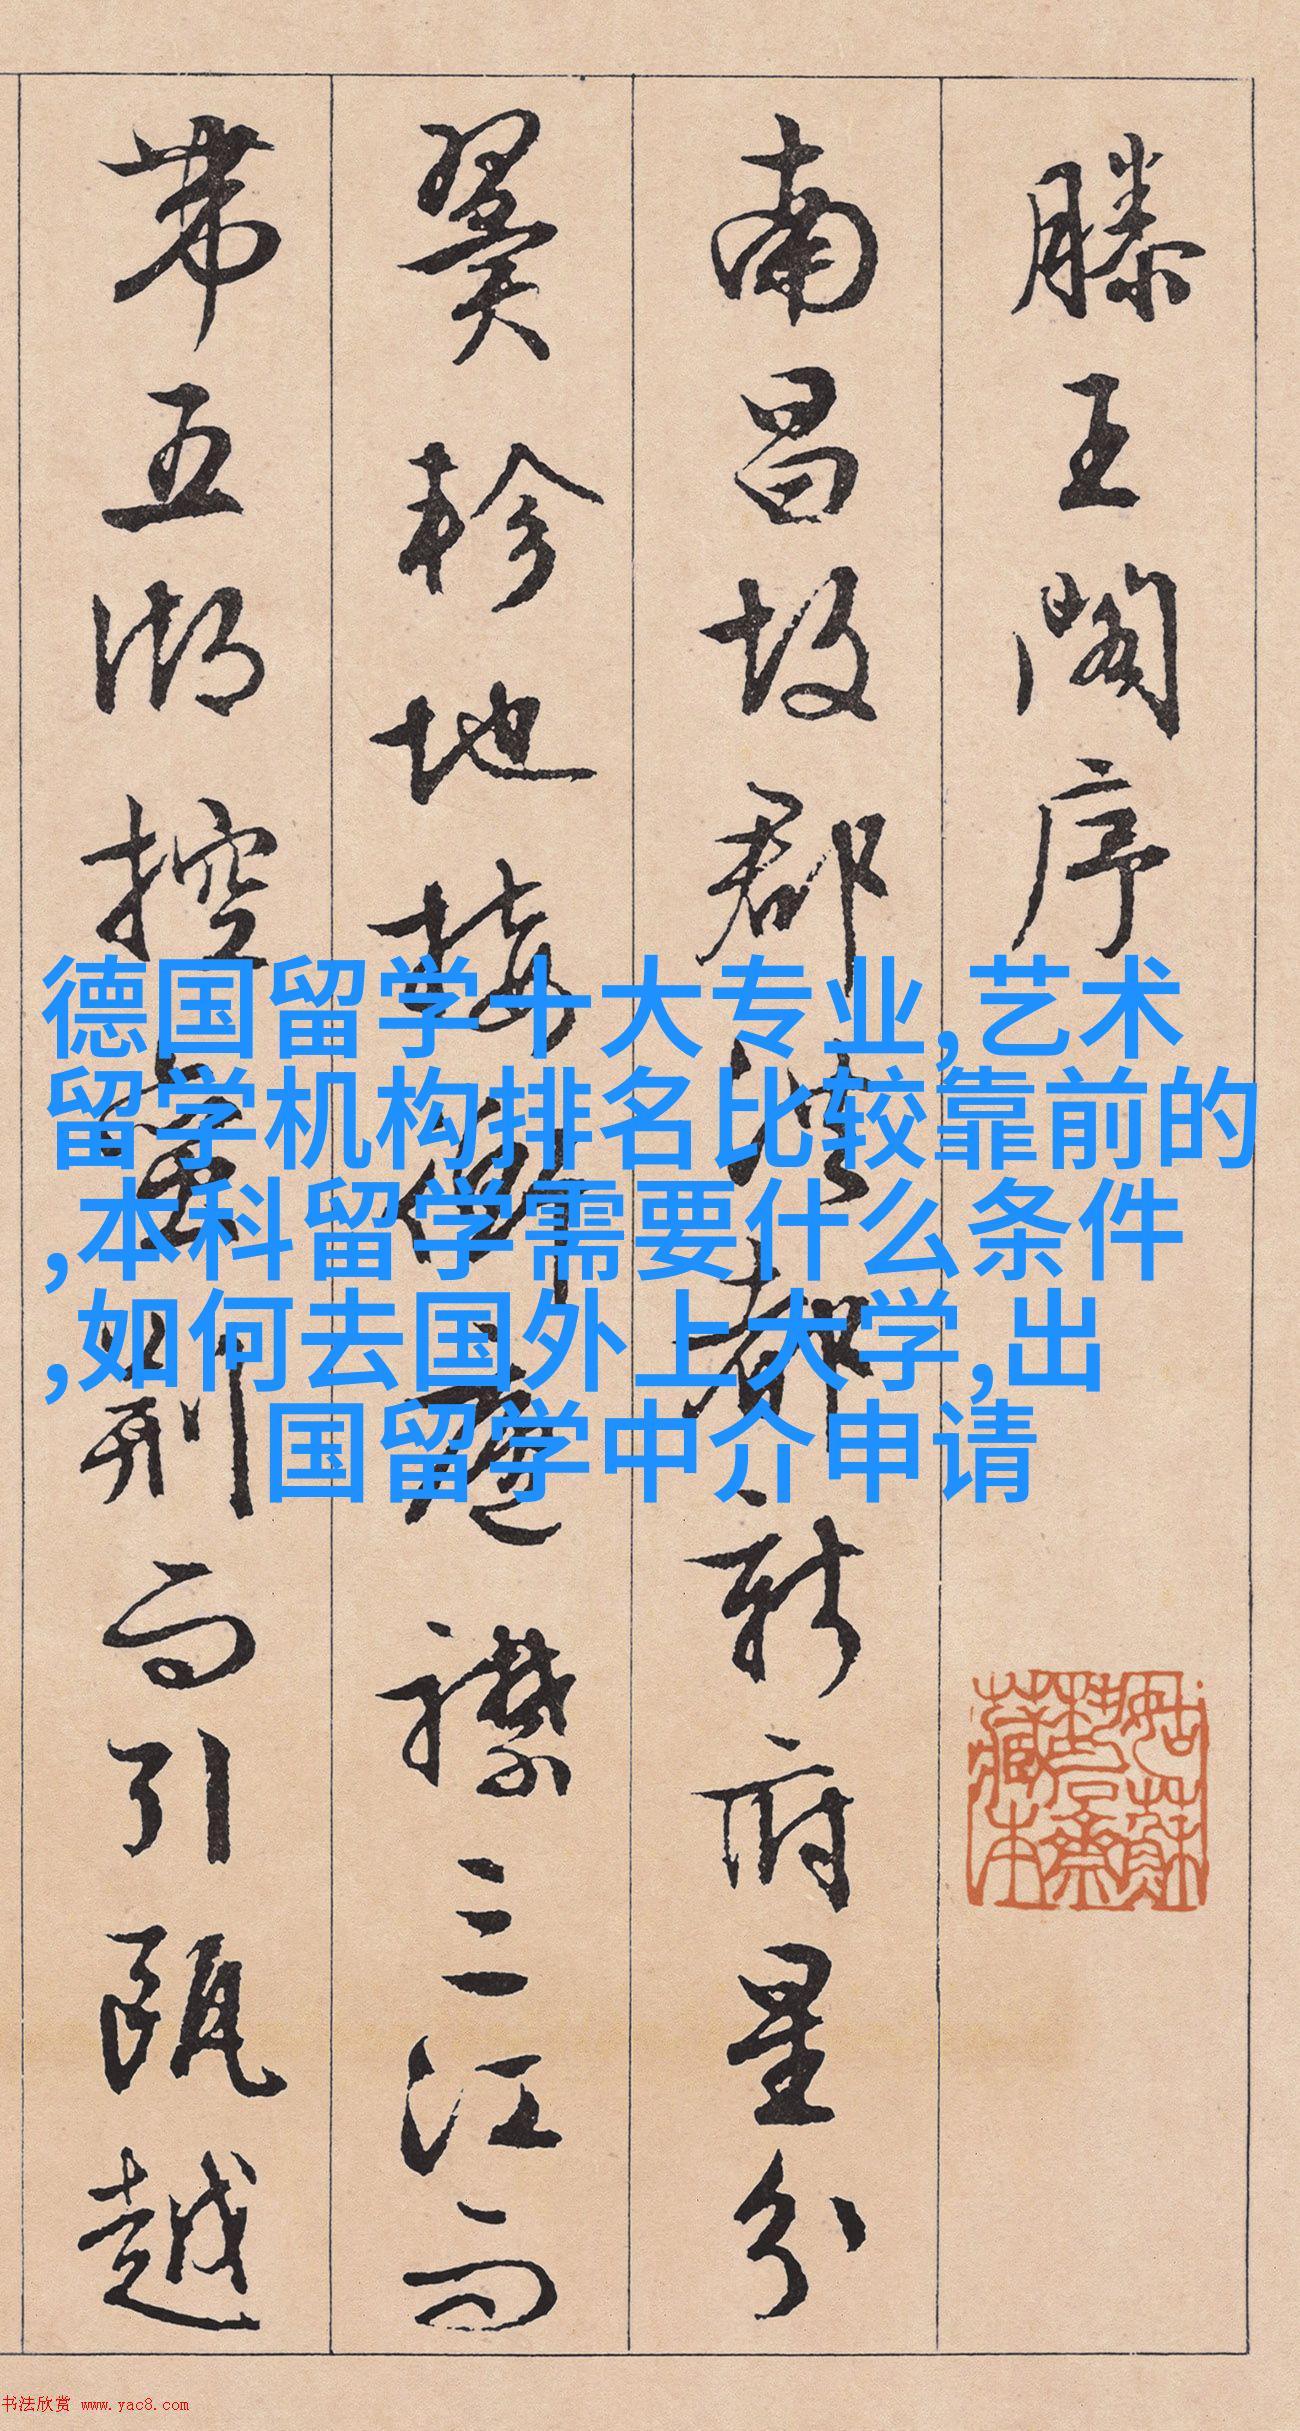 滕王閣序
南昌故郡洪都新府星分
翼軫地接衡廬襟三江而
帶五湖控蠻荊而引甌越
德国留学十大专业,艺术
留学机构排名比较靠前的
,本科留学需要什么条件
,如何去国外上大学,出
国留学中介申请
书法欣赏 www.yac8.com